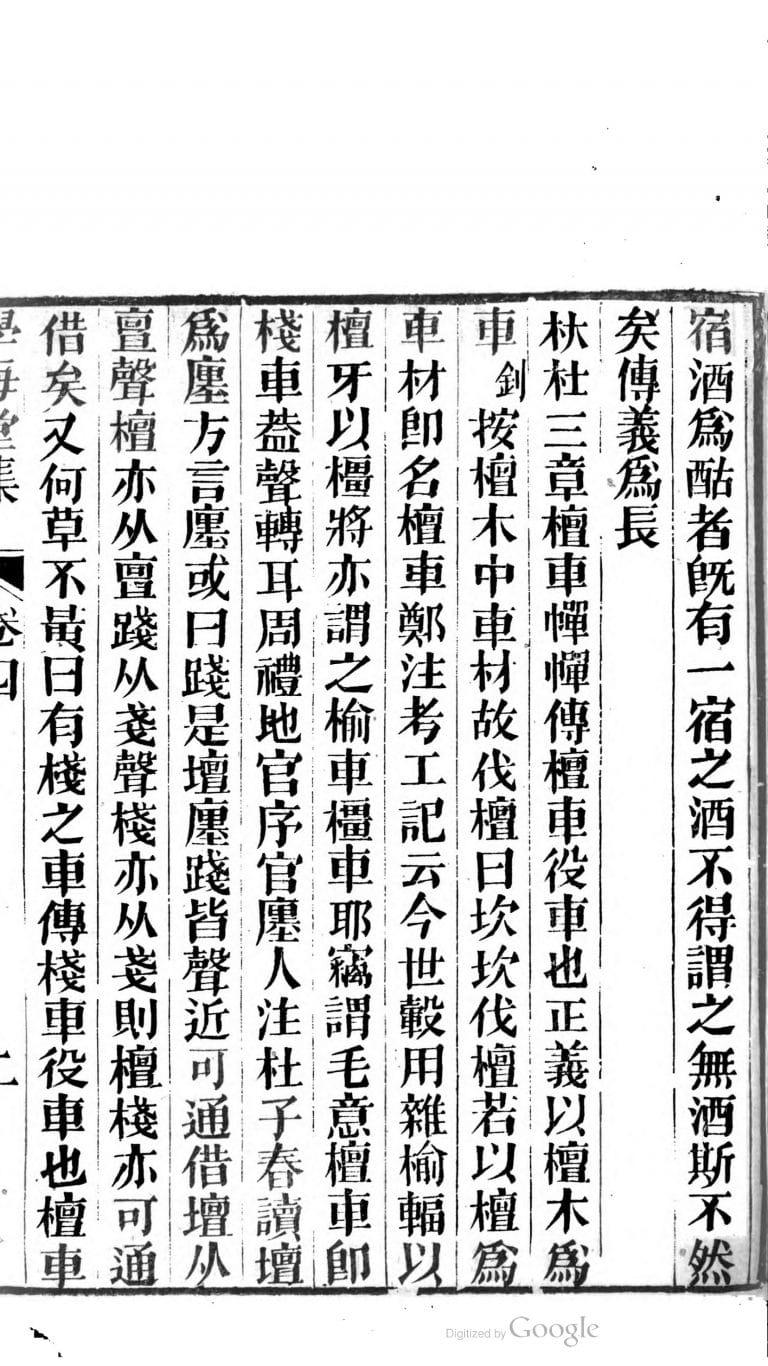 宿酒爲酤者旣有一宿之酒不得謂之無酒斯不然
矣傳義爲長
杕杜三章檀車幝幝傳檀車役車也正義以檀木爲
車釗按檀木中車材故伐檀曰坎坎伐檀若以檀爲
車材卽名檀車鄭注考工記云今世轂用雜榆輻以
檀牙以橿將亦謂之榆車橿車耶竊謂毛意檀車卽
棧車葢聲轉耳周禮地官序官廛人注杜子春讀壇
爲廛方言廛或曰踐是壇廛踐皆聲近可通借壇从
亶聲檀亦从亶踐从戔聲棧亦从戔則檀棧亦可通
借矣又何草不黃曰有棧之車傳棧車役車也檀車
學海堂集
卷四
Digitized by Google